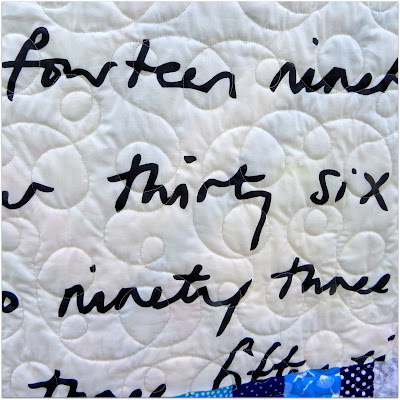 fourteen ninet
thirty six
ninety three
three fifty